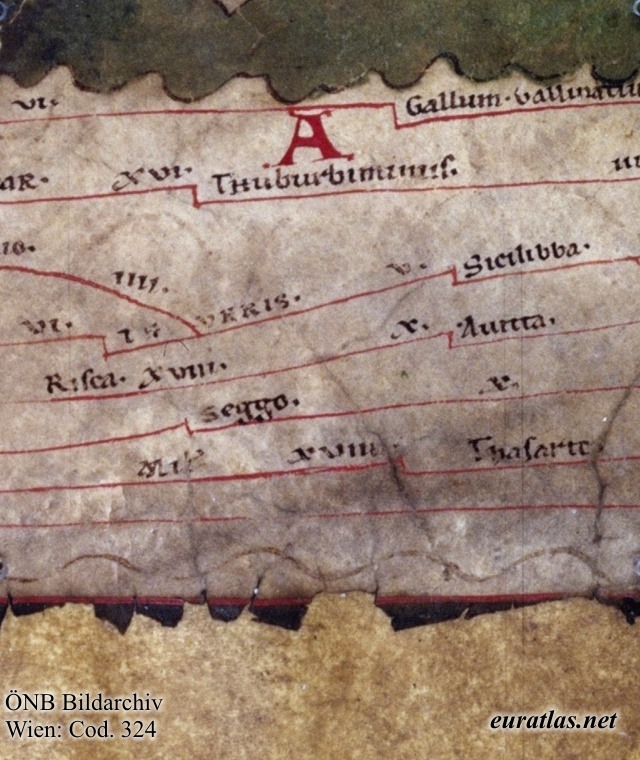 VI.
Gallum·vallinatiu
A
AR. XVI. Thuburbiminus. III
IO.
IIII.
V. Sicilibba.
VI. URRIS.
X. Auitta.
Risca. XVIII.
Seggo. X.
XVIII Thasarte.
ÖNB Bildarchiv
Wien: Cod. 324
euratlas.net